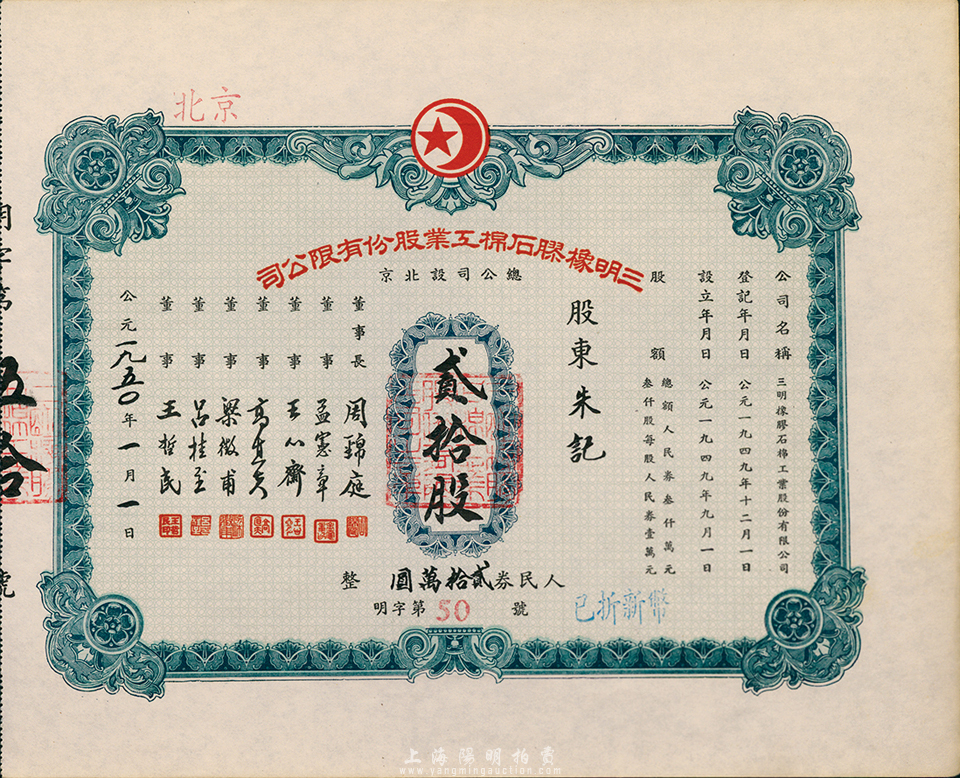 北京
三明橡膠石棉工業股份有限公司
總公司設北京
公司名稱 三明橡膠石棉工業股份有限公司
登記年月日 公元一九四九年十二月一日
設立年月日 公元一九四九年九月一日
股額 總額人民券叁仟萬元
叁仟股每股人民券壹萬元
股東朱記
貳拾股
人民券貳拾萬圓整
明字第50號
董事長 周錦庭
董事 孟憲章
董事 王心齋
董事
董事 梁徵甫
董事 呂桂全
董事 王哲民
公元一九五〇年一月一日
已折新幣
字第
伍拾
號
上海陽明拍賣
www.yangmingauction.com